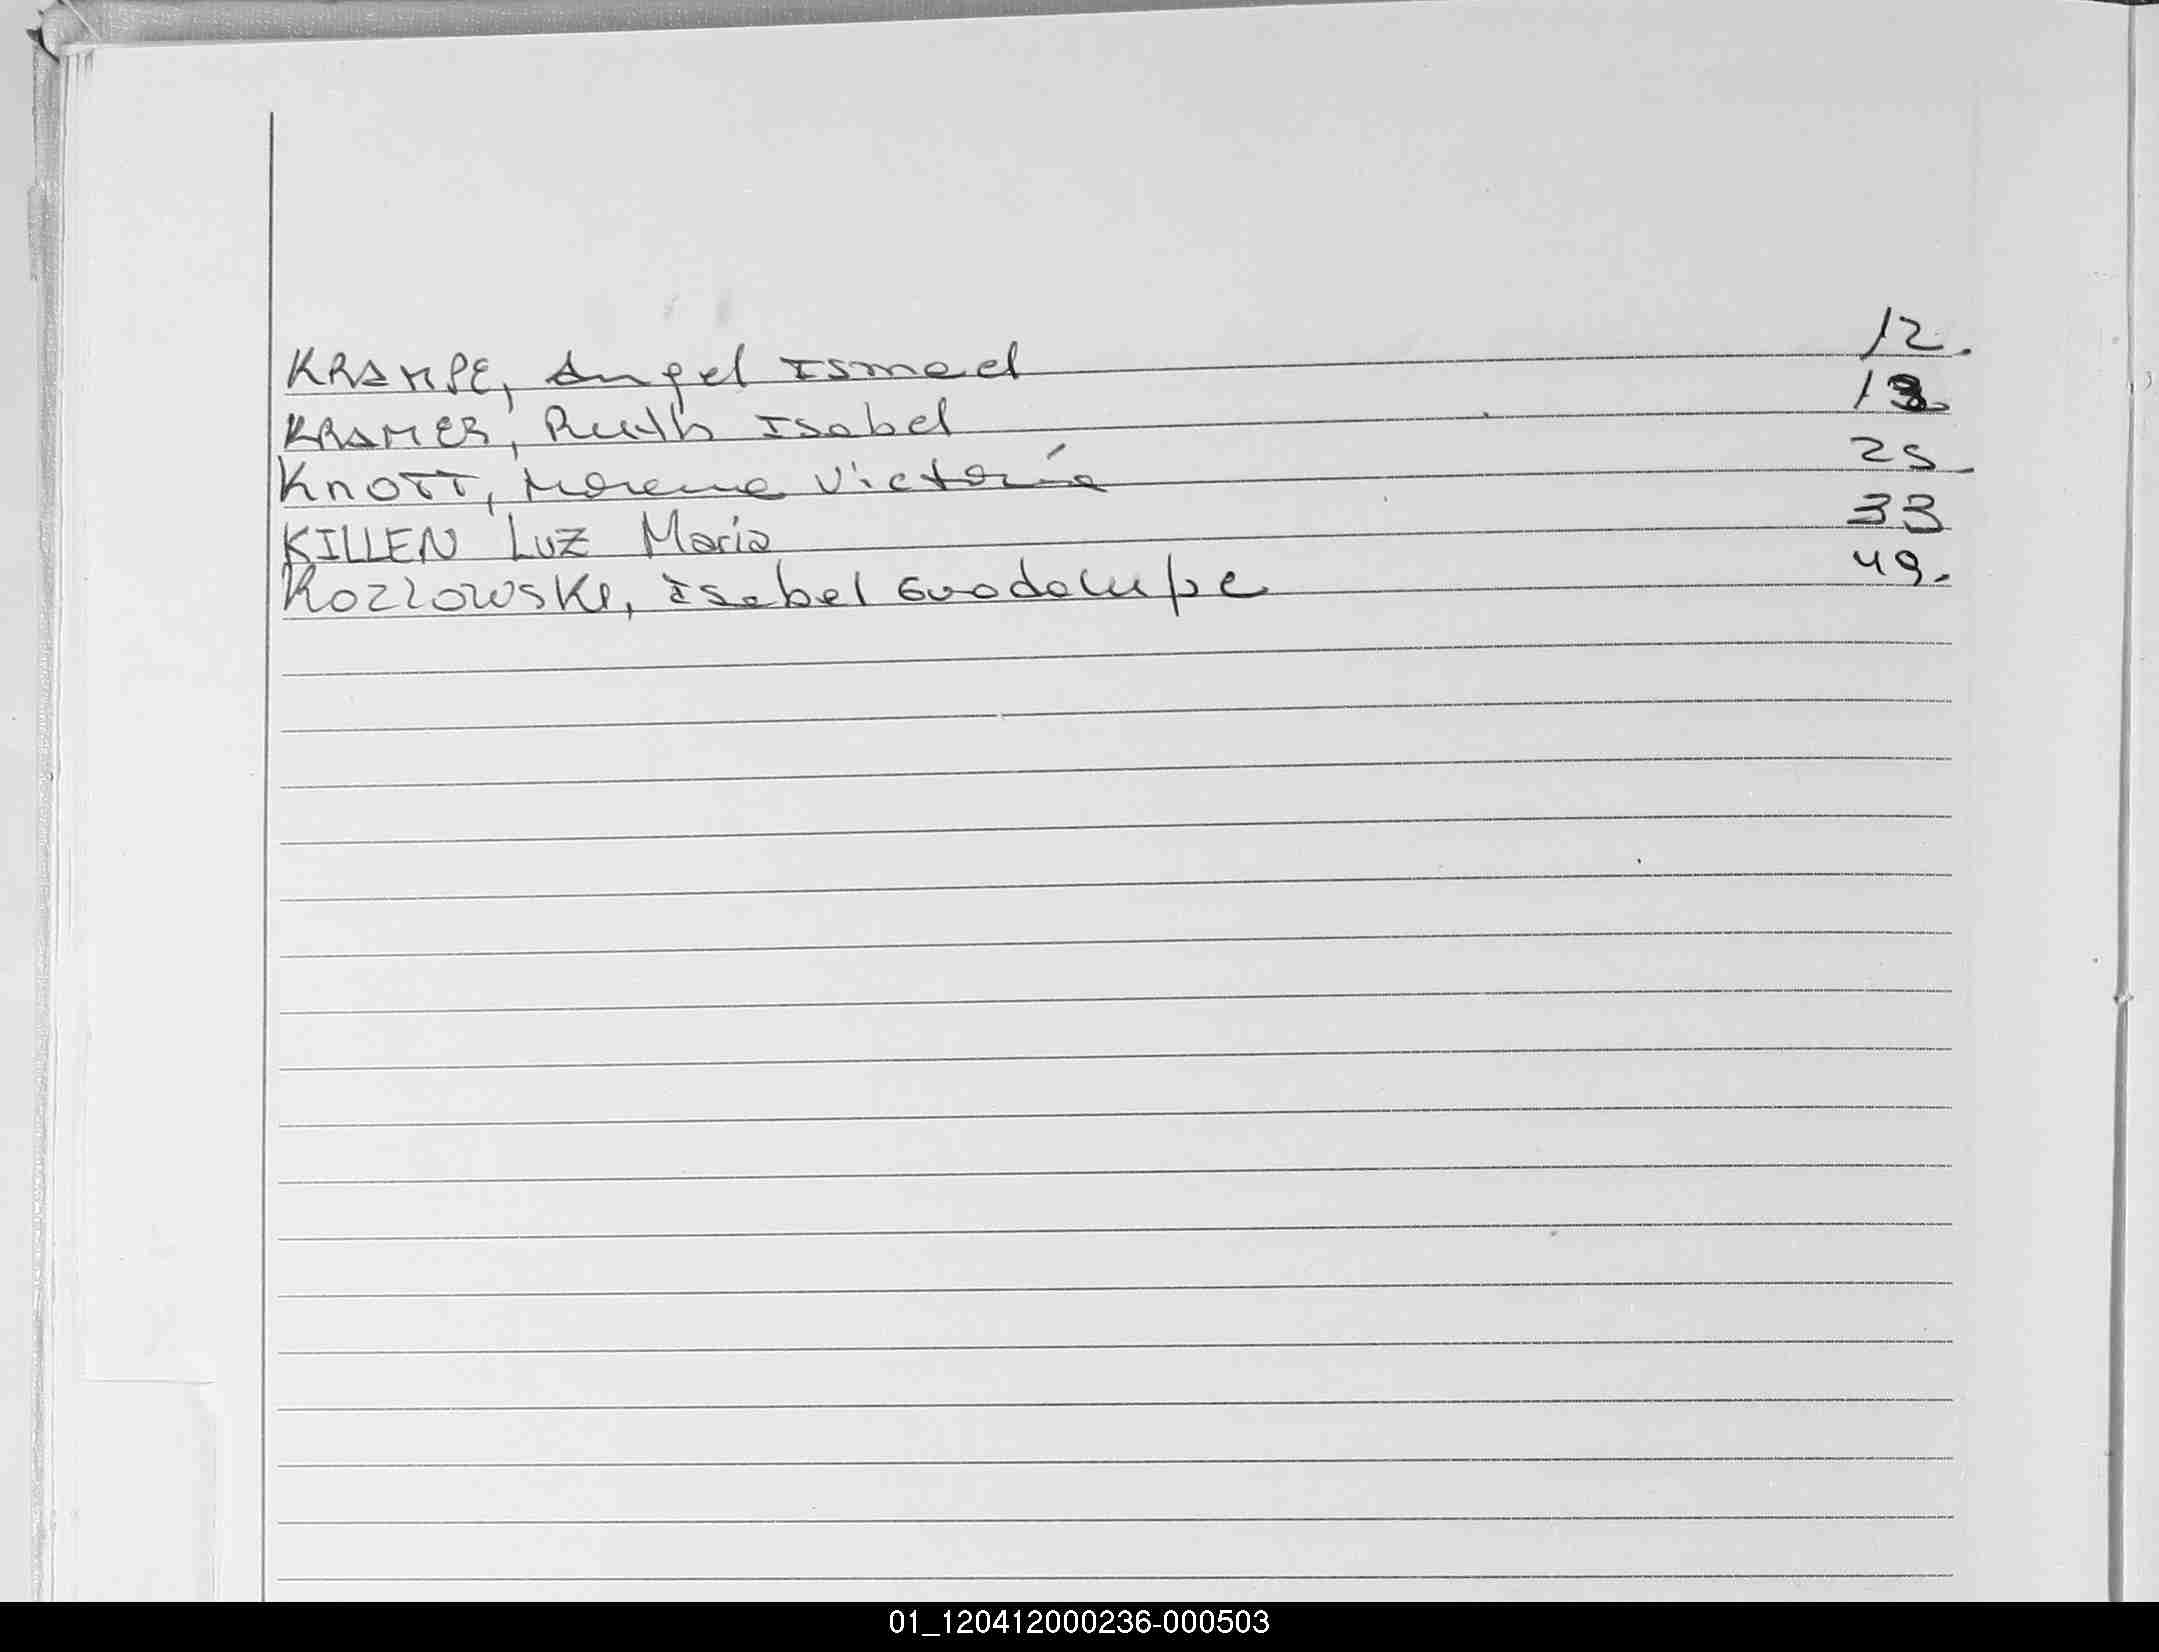 KRAMPE, Angel Ismael 12.
KRAMER, Ruth Isabel 13.
KnOTT, Morena Victoria 25
KILLEN Luz Maria 33
KOZLOWSKI, Isabel Guadalupe 49.
01_120412000236-000503